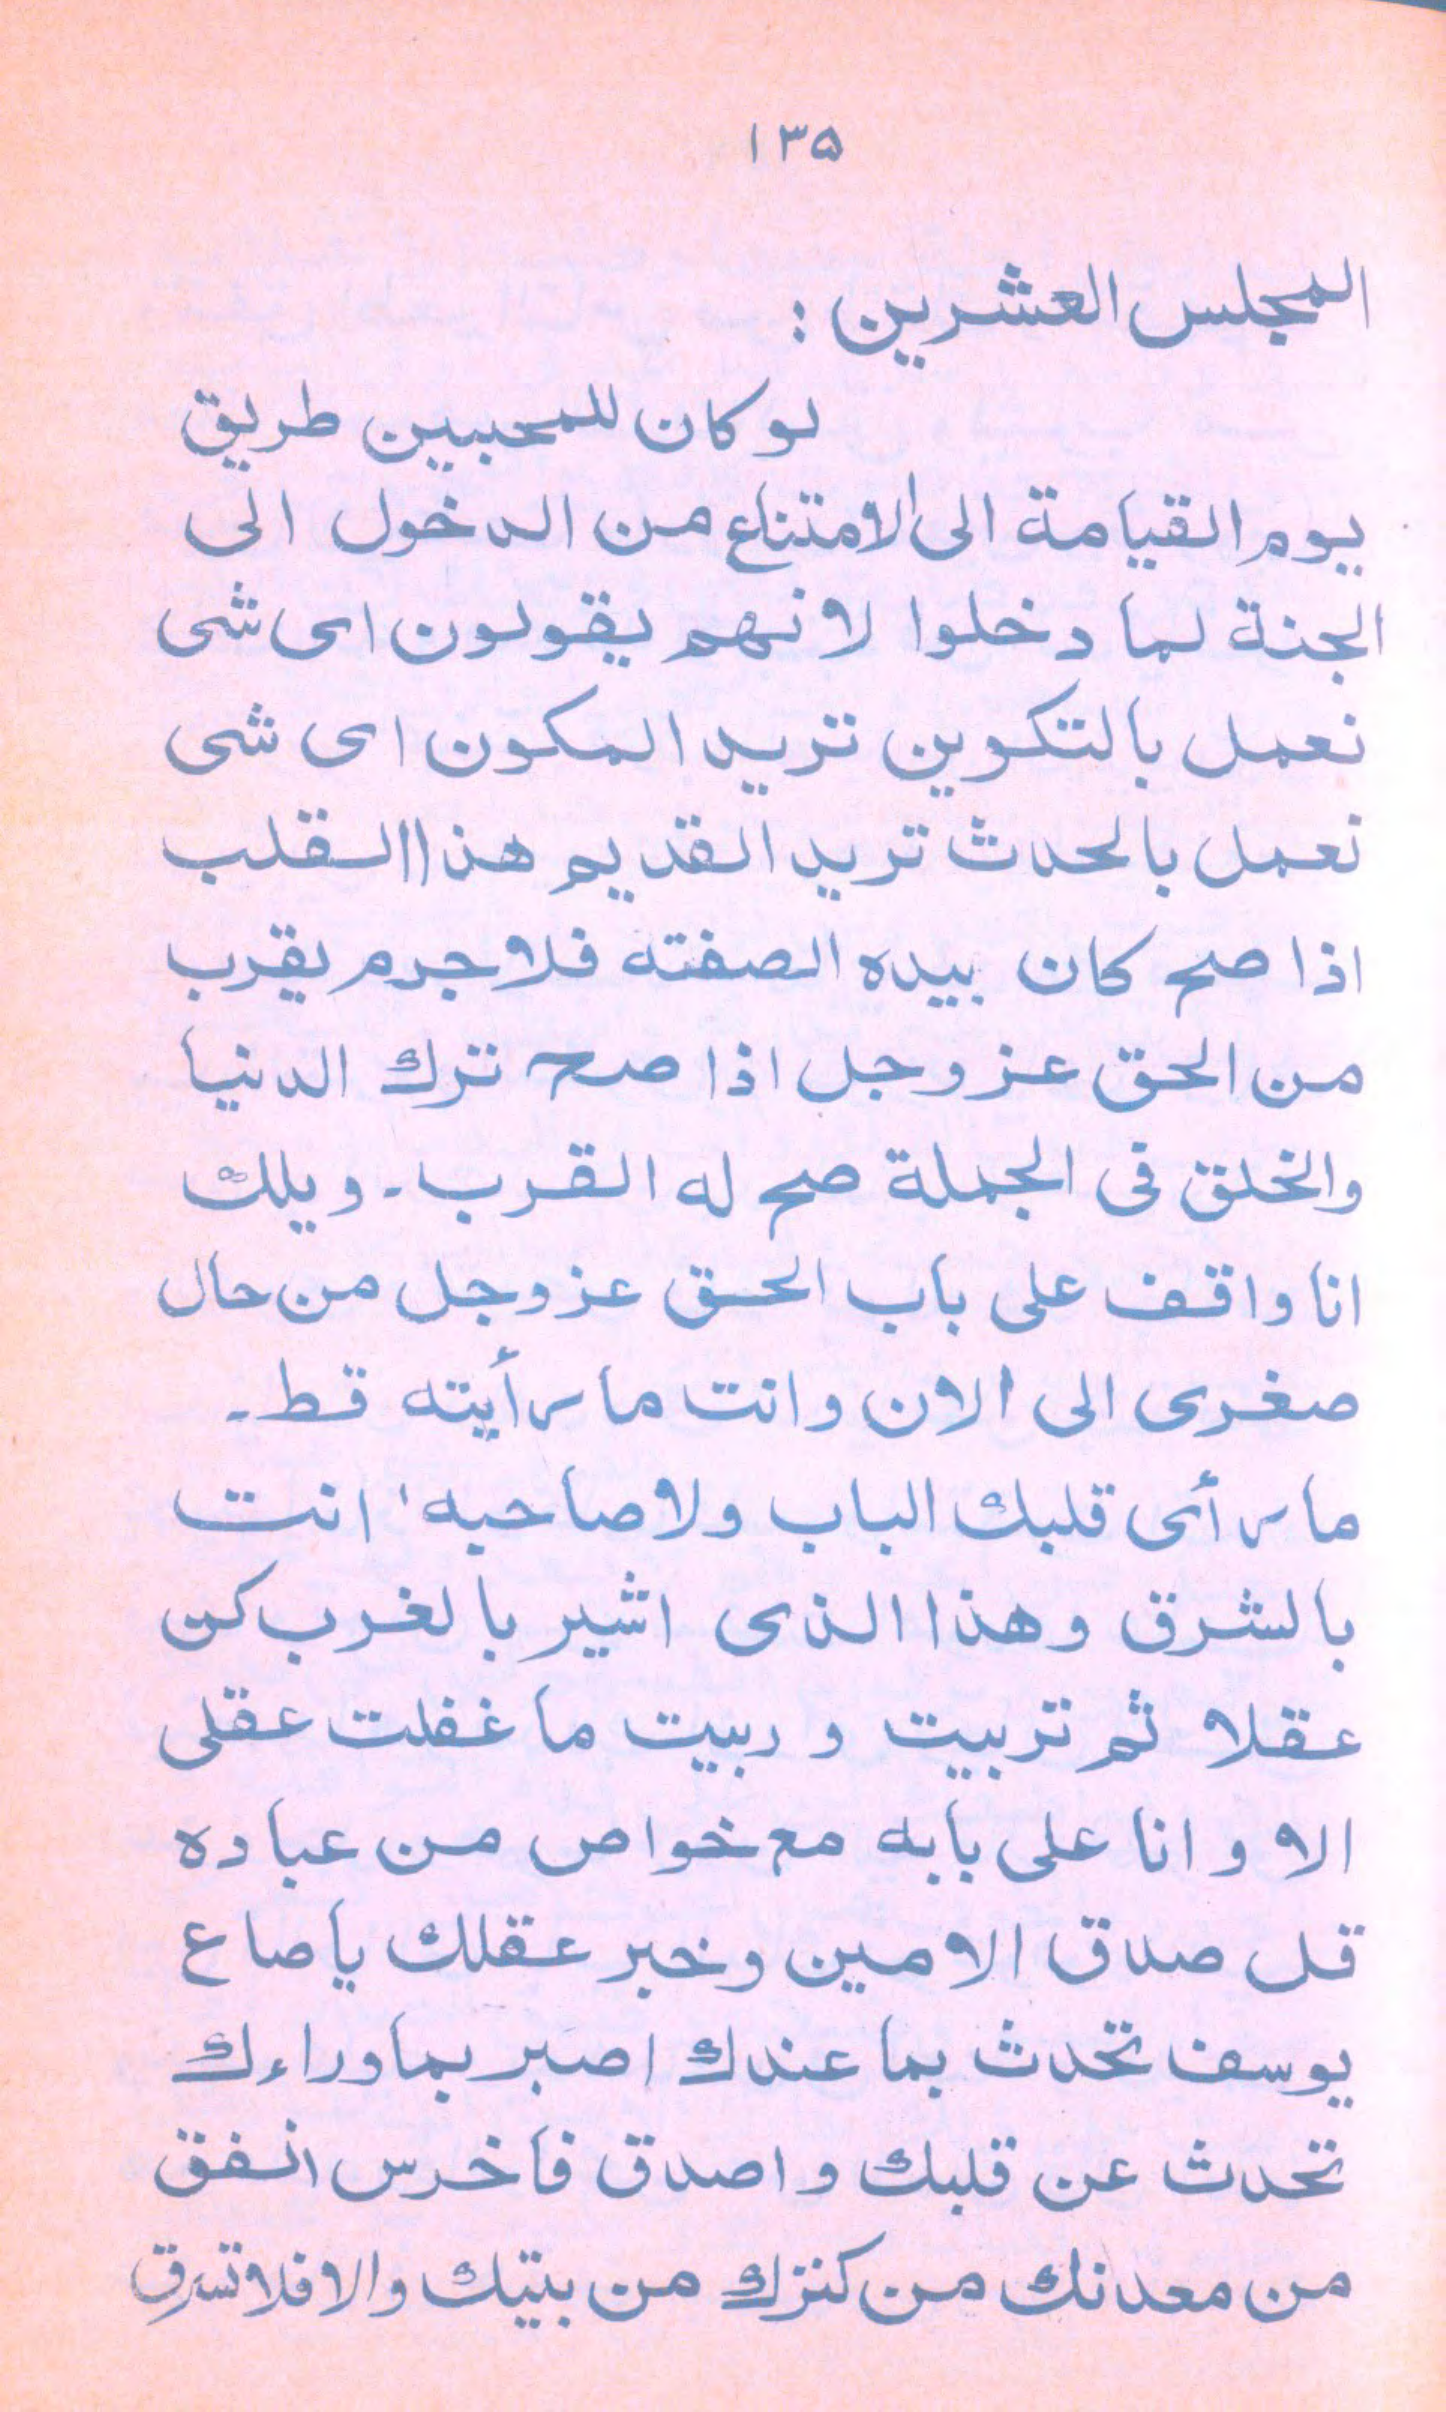 ۱۳۵
المجلس العشرين :
لو كان للمحبيين طريق
يوم القيامة الى الامتناع من الدخول الى
الجنة لما دخلوا لانهم يقولون اى شى
نعمل بالتكوين تريد المكون اى شى
نعمل بالحدث تريد القديم هذا القلب
اذا صح كان بيده الصفته فلا جرم يقرب
من الحق عز وجل اذا صح ترك الدنيا
والخلق فى الجملة صح له القرب۔ ويلك
انا واقف على باب الحق عز وجل من حال
صغرى الى الان وانت ما رأيته قط۔
ما رأى قلبك الباب ولا صاحبه' انت
بالشرق وهذا الذى اشير بالغرب كن
عقلا ثم تربيت و ربيت ما غفلت عقلى
الا و انا على بابه مع خواص من عباده
قل صدق الامين وخبر عقلك يا صاع
يوسف تحدث بما عندك اصبر بما وراءك
تحدث عن قلبك و اصدق فاخرس انفق
من معدنك من كنزك من بيتك والا فلا تسرق